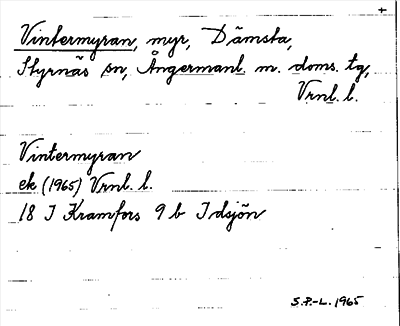 Vintermyran, myr, Dämsta,
Styrnäs sn, Ångermanl. m. doms. tg,
Vrnl. l.
Vintermyran
ek (1965) Vrnl. l.
18 I Kramfors 9 b Idsjön
S.P.-L. 1965